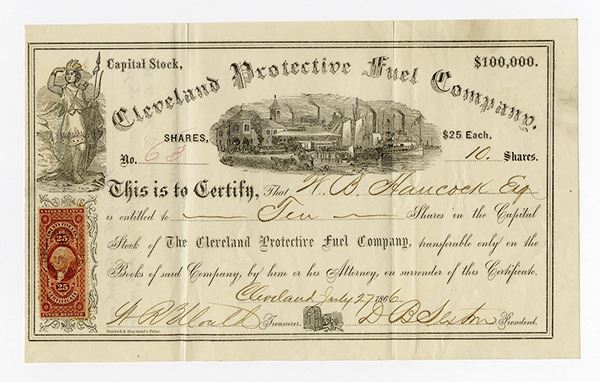 Capital Stock, $100,000.
Cleveland Protective Fuel Company.
SHARES, $25 Each,
No. 63 10. Shares.
This is to Certify, That W. B. Hancock Esq
is entitled to Ten Shares in the Capital
Stock of The Cleveland Protective Fuel Company, transferable only on the
Books of said Company, by him or his Attorney, on surrender of this Certificate.
Cleveland July 27 1866
Treasurer. D B Sexton President.
Sanford & Hayward's Print.
25 25
CERTIFICATE
INTER. REVENUE